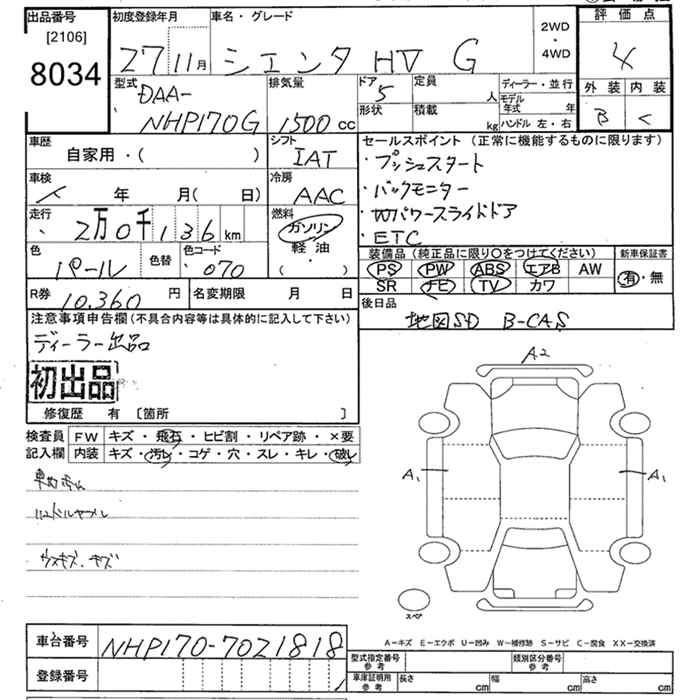 出品番号 初度登録年月 車名・グレード 2WD・4WD 評価点
[2106]
8034
27 11月 シエンタ HV G 4
型式 排気量 ドア 定員 人 ディーラー・並行 外装 内装
DAA-
NHP170G 1500cc 5 形状 積載 kg モデル年式 年 ハンドル 左・右 B C
車歴 シフト セールスポイント (正常に機能するものに限ります)
自家用・( ) IAT ・プッシュスタート
車検 年 月( 日) 冷房 AAC ・バックモニター
走行 2万0千136km 燃料 ガソリン・軽油 ・Wパワースライドドア
・ETC
色 パール 色替 色コード 070 装備品 (純正品に限り○をつけてください) 新車保証書
PS PW ABS エアB AW 有・無
SR ナビ TV カワ
R券 10,360円 名変期限 月 日 後日品
地図SD B-CAS
注意事項申告欄(不具合内容等は具体的に記入して下さい)
ディーラー出品
初出品
修復歴 有 [箇所 ]
検査員 FW キズ・飛石・ヒビ割・リペア跡・×要
記入欄 内装 キズ・汚レ・コゲ・穴・スレ・キレ・破レ
ハンドルヤブレ
ウスキズ、キズ
A2
A1 A1
スペア
A−キズ E−エクボ U−凹み W−補修跡 S−サビ C−腐食 XX−交換済
車台番号 NHP170-7021818
登録番号
型式指定番号 参考 類別区分番号 参考
車庫証明用 参考 長さ cm 幅 cm 高さ cm